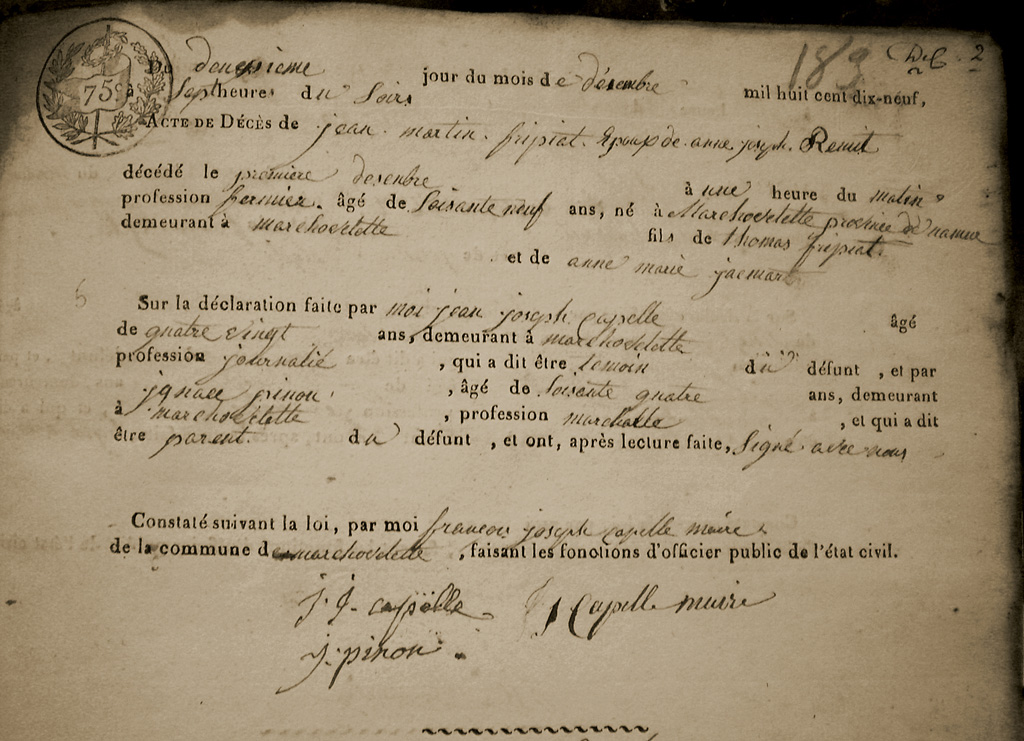 189 D.C. 2
75 c
Du deuxsieme jour du mois de désembre mil huit cent dix-neuf,
à Sept heures du Soirs
ACTE DE DÉCÈS de jean martin fripiat. Epoux de anne joseph. Remit
décédé le premiere desenbre à une heure du matin
profession fermier. âgé de Soisante neuf ans, né à Marchovelette province de namur
demeurant à marchovelette fils de thomas fripiat.
et de anne marie jacmart
5 Sur la déclaration faite par moi jean joseph Capelle âgé
de quatre vingt ans, demeurant à marchovelette
profession journalié , qui a dit être temoin du défunt , et par
jgnace pinon , âgé de Soisante quatre ans, demeurant
à marchovelette , profession marchalle , et qui a dit
être parent. du défunt , et ont, après lecture faite, Signé avec nous
Constaté suivant la loi, par moi francois joseph Capelle maire
de la commune de marchovelette , faisant les fonctions d'officier public de l'état civil.
j. j. capëlle Capelle maire
j. pinon